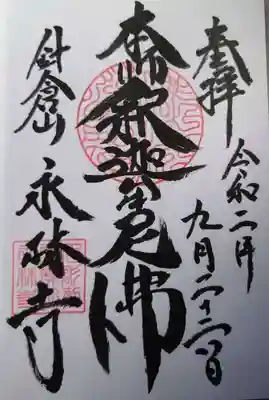 奉拝
令和二年
九月二十二日
本尊釈迦牟尼佛
針倉山
永林寺